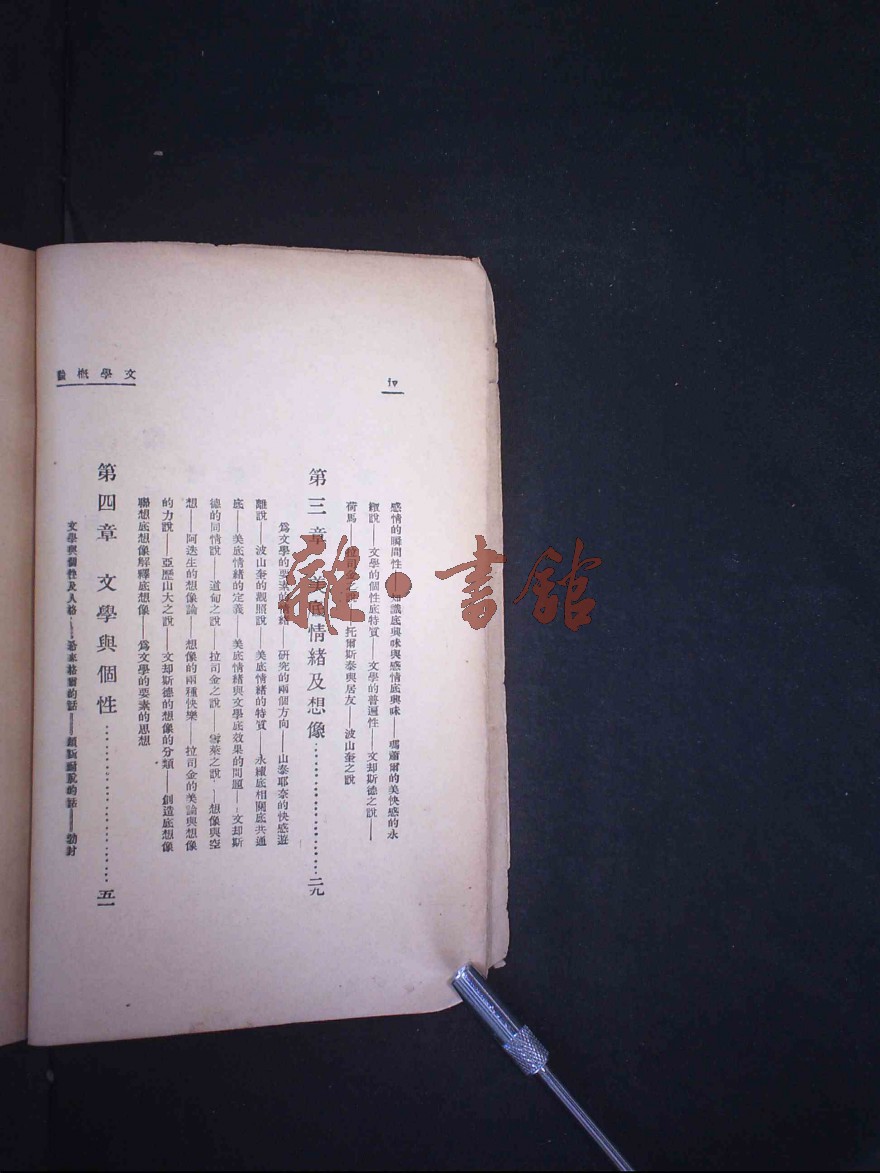 文學概論
感情的瞬間性——知識底興味與感情底興味——馬蕭爾的美快感的永
續說——文學的個性底特質——文學的普遍性——文却斯德之說——
荷馬——拉司金之說——托爾斯泰與居友——波山奎之說
第三章 美底情緒及想像……二九
爲文學的要素的情緒——研究的兩個方向——山泰耶奈的快感遊
離說——波山奎的觀照說——美底情緒的特質——永續底相關底共通
底——美底情緒的定義——美底情緒與文學底效果的問題——文却斯
德的同情說——道甸之說——拉司金之說——雪萊之說——想像與空
想——阿迭生的想像論——想像的兩種快樂——拉司金的美論與想像
的力說——亞歷山大之說——文却斯德的想像的分類——創造底想像
聯想底想像解釋底想像——爲文學的要素的思想
第四章 文學與個性……五一
文學與個性及人格——的話——的話——勃封
雜·書館